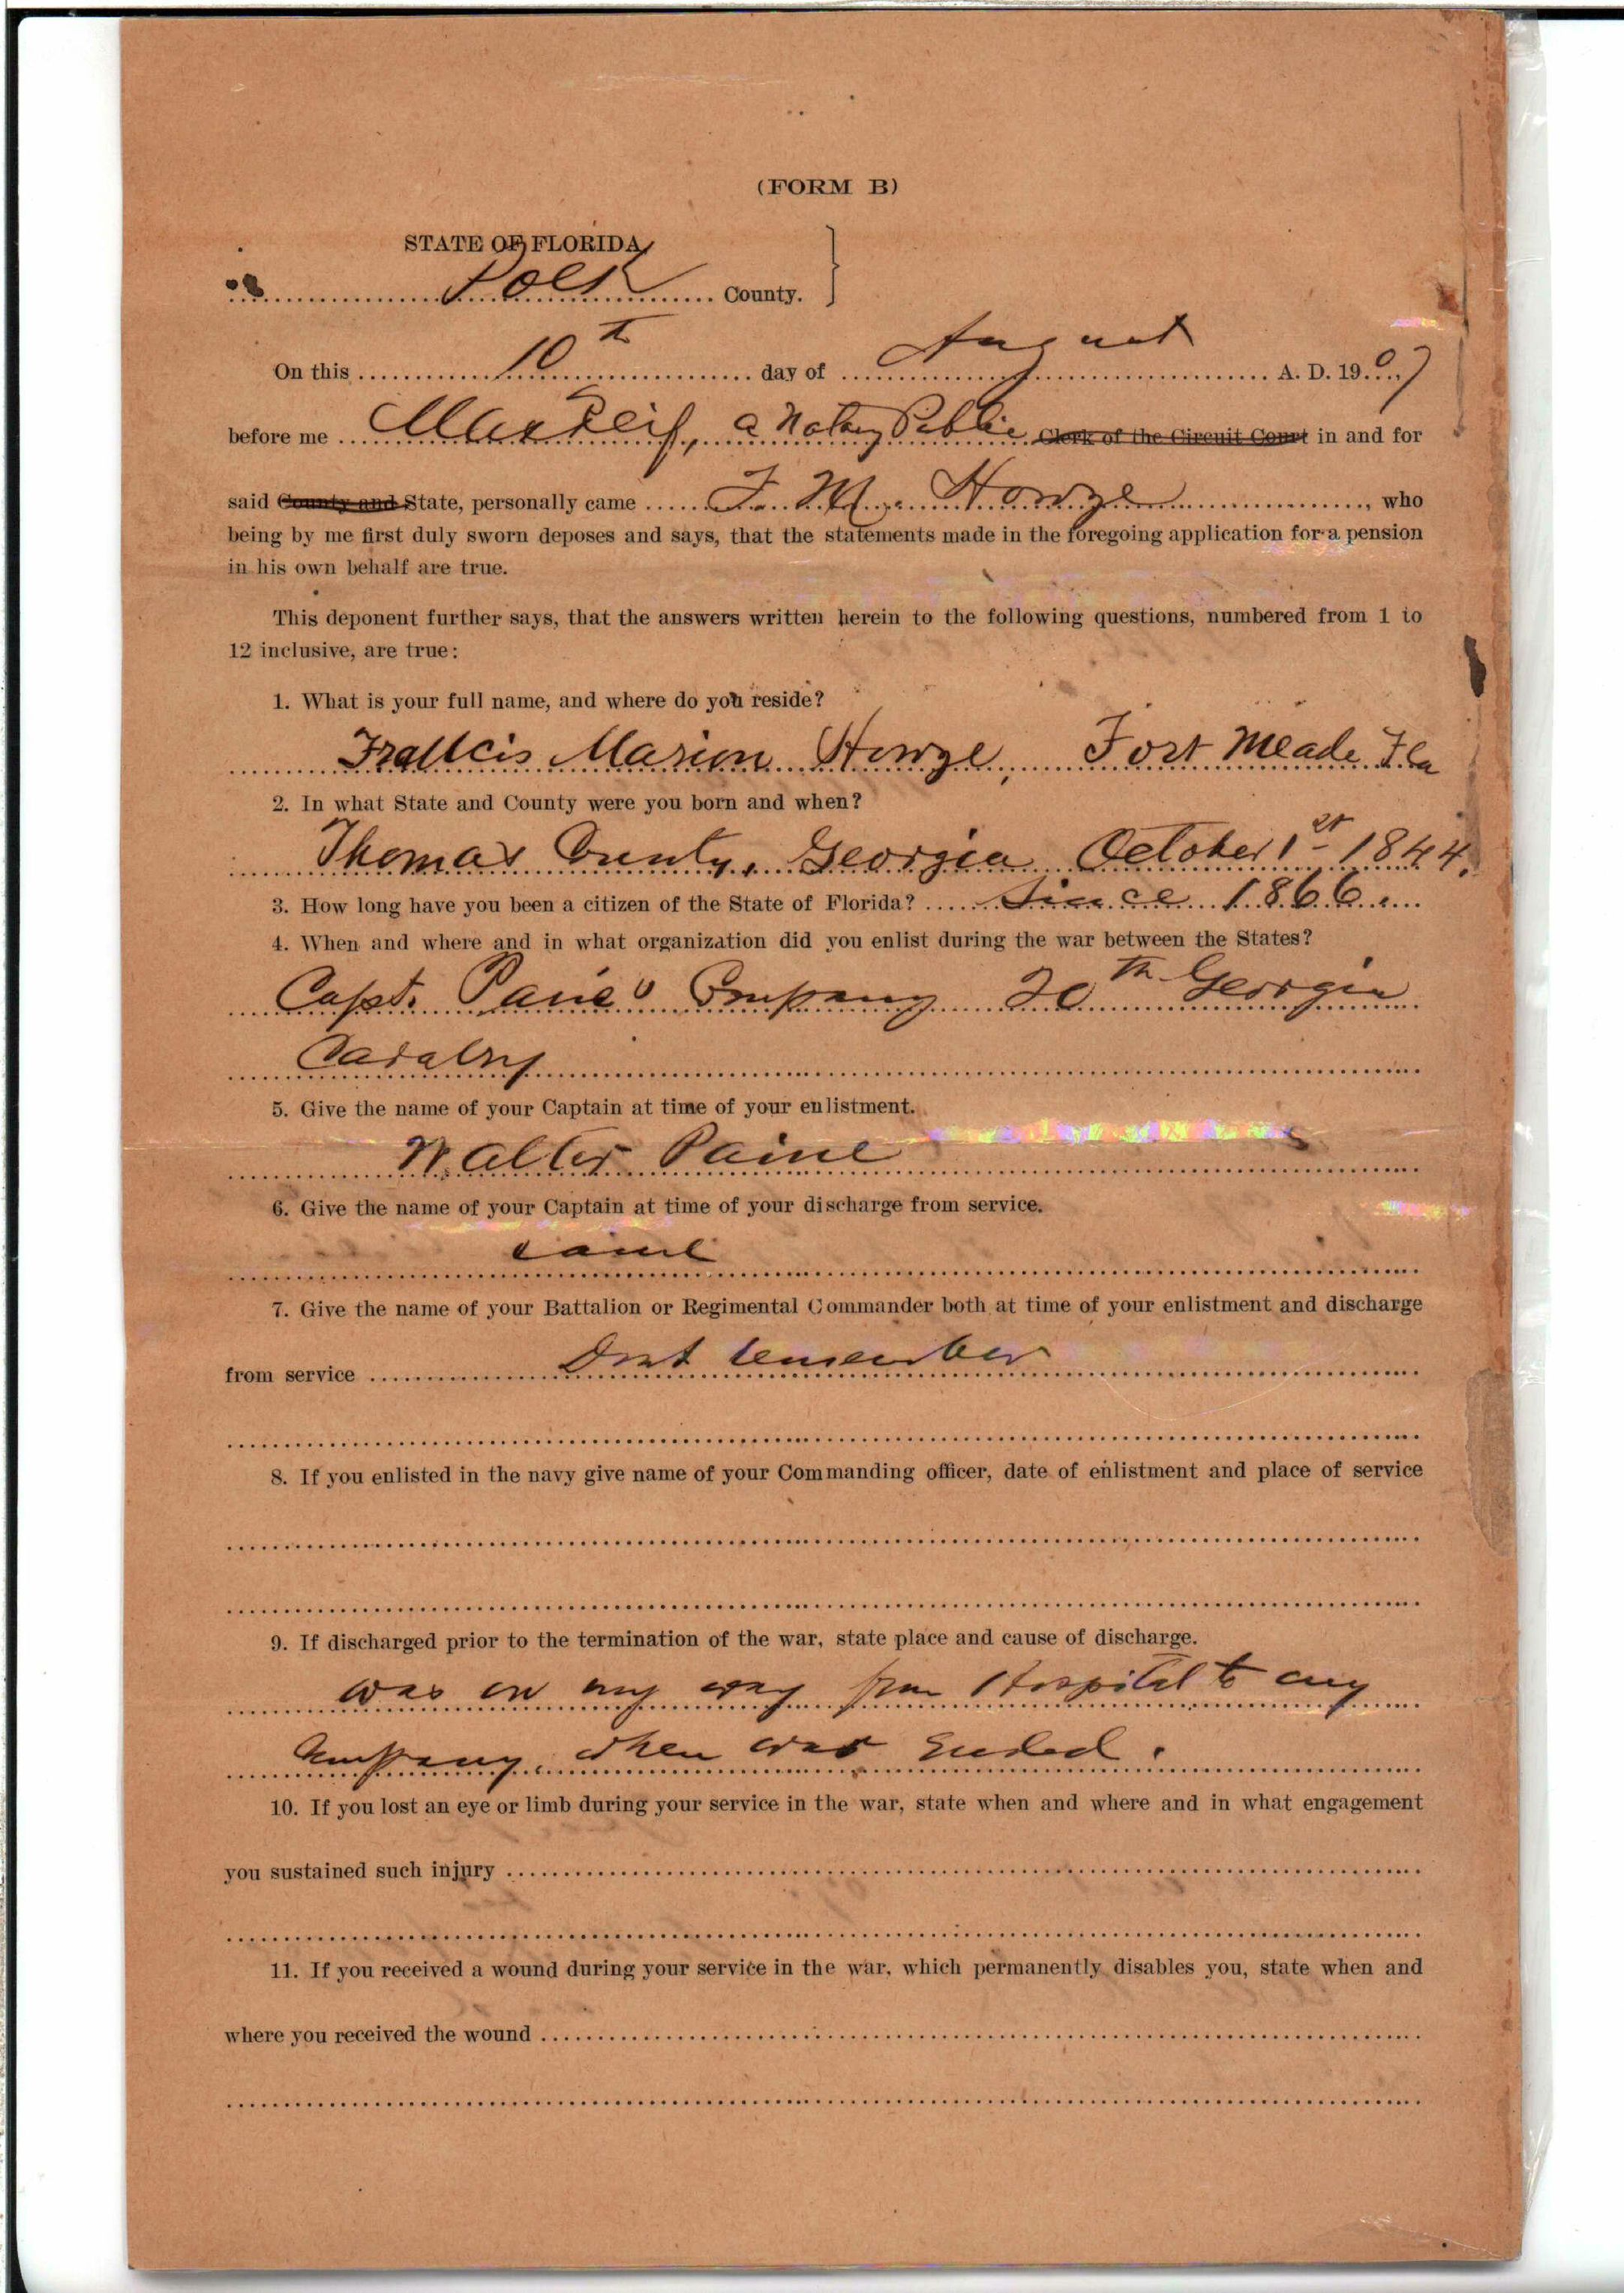 (FORM B)
STATE OF FLORIDA
Polk County.
On this 10th day of August A. D. 1907
before me Max Reif, a Notary Public Clerk of the Circuit Court in and for
said County and State, personally came F. M. Howze, who
being by me first duly sworn deposes and says, that the statements made in the foregoing application for a pension
in his own behalf are true.
This deponent further says, that the answers written herein to the following questions, numbered from 1 to
12 inclusive, are true:
1. What is your full name, and where do you reside?
Francis Marion Howze, Fort Meade Fla
2. In what State and County were you born and when?
Thomas County, Georgia October 1st 1844.
3. How long have you been a citizen of the State of Florida? Since 1866.
4. When and where and in what organization did you enlist during the war between the States?
Capt. Paine's Company 20th Georgia
Cavalry
5. Give the name of your Captain at time of your enlistment.
Walter Paine
6. Give the name of your Captain at time of your discharge from service.
same
7. Give the name of your Battalion or Regimental Commander both at time of your enlistment and discharge
from service Dont remember
8. If you enlisted in the navy give name of your Commanding officer, date of enlistment and place of service
9. If discharged prior to the termination of the war, state place and cause of discharge.
was on my way from Hospital to my
Company, when war ended.
10. If you lost an eye or limb during your service in the war, state when and where and in what engagement
you sustained such injury
11. If you received a wound during your service in the war, which permanently disables you, state when and
where you received the wound